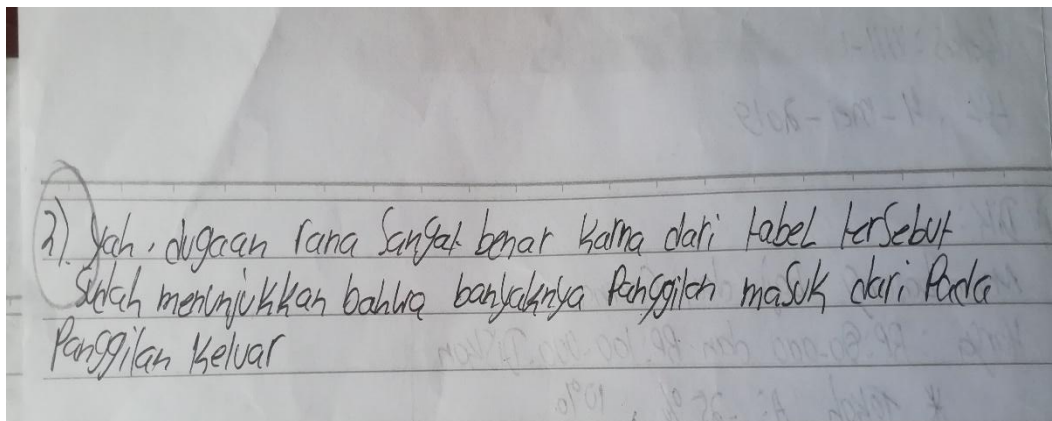 2). Yah, dugaan rana Sangat benar karna dari tabel tersebut
Sudah menunjukkan bahwa banyaknya Panggilan masuk dari Pada
Panggilan Keluar